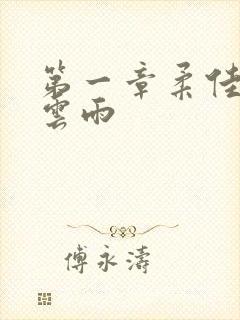 第一章柔佳
雲雨
傅永濤